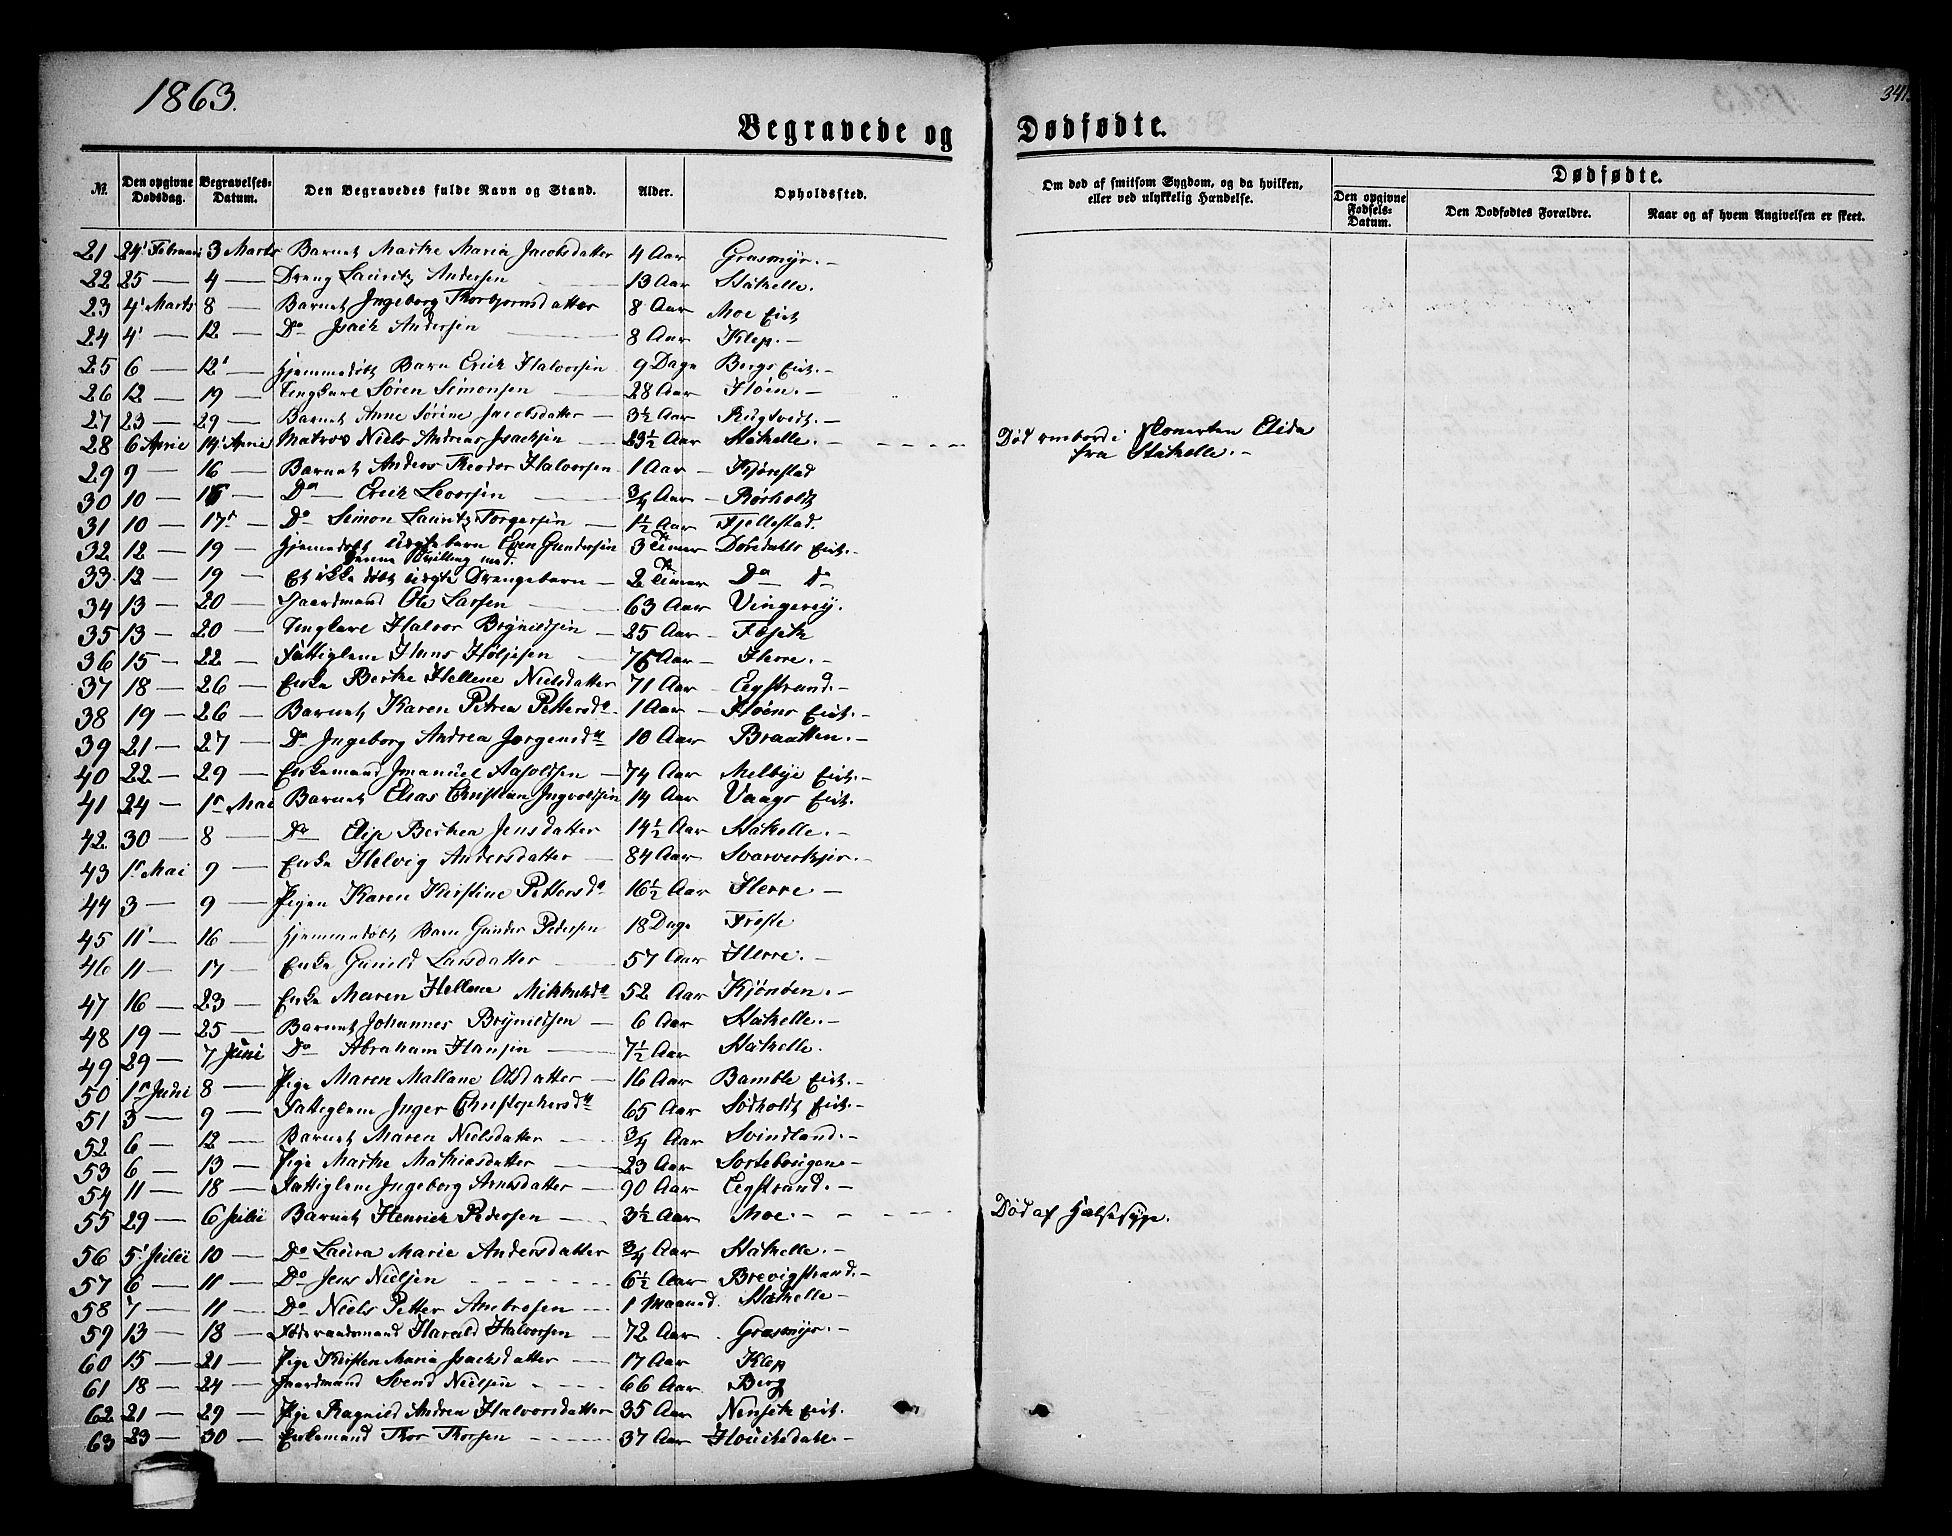 1863.
341.
Begravede og Dødfødte.
№ Den opgivne Dødsdag. Begravelses-Datum. Den Begravedes fulde Navn og Stand. Alder. Opholdssted. Om død af smitsom Sygdom, og da hvilken, eller ved ulykkelig Hændelse. Dødfødte.
Den opgivne Fødsels-Datum. Den Dødfødtes Forældre. Naar og af hvem Angivelsen er skeet.
21 24' Februari 3 Marts Barnet Marthe Maria Jacobsdatter 4 Aar Grasmyr.-
22 25 — 4 — Dreng Lauritz Andersen 13 Aar Stathelle.
23 4' Marts 8 — Barnet Ingeborg Thorbjørnsdatter 8 Aar Moe Eiet
24 4' — 12 — Do Isach Andersen 8 Aar Klep.-
25 6 — 12' Hjemmedøbt Barn Erich Halvorsen 9 Dage Bergs Eiet.-
26 12 — 19 — Ungkarl Søren Simonsen 28 Aar Floen.-
27 23 — 29 — Barnet Anne Sørine Jacobsdatter — 3½ Aar Rugtvedt.-
28 6 April 14' April Matros Niels Andreas Isachsen — 23½ Aar Stathelle.- Død ombord i Skonerten Elida
fra Stathelle.-
29 9 — 16 — Barnet Anders Theodor Halvorsen 1 Aar — Kjørstad
30 10 — 16 — Do — Erich Leversen 3/4 Aar — Rørholdt
31 10 — 17' — Do Simon Lauritz Torgersen — 1½ Aar Fjellestad.
32 12 — 19 — Hjemmedøbt uægte barn Even Gundersen 3 Timer Dordals Eiet.-
denne Tvilling med.
33 12 — 19 — Et ikke døbt uægte Drengebarn — 2 Timer Do Do
34 13 — 20 — Gaardmand Ole Larsen 63 Aar Vingereij.
35 13 — 20 — Ungkarl Halvor Brynildsen — 25 Aar — Fosseth
36 15 — 22 — Fattiglem Hans Høljesen — 75 Aar — Herre.-
37 18 — 26 — Enke Berthe Hellene Nielsdatter 71 Aar — Egstrand.-
38 19 — 26 — Barnet Karen Petrea Pettersdr 1 Aar — Floens Eiet.-
39 21 — 27 — Do Ingeborg Andrea Jørgensdtr 10 Aar Braatten.-
40 22 — 29 — Enkemand Imanuel Aasoldsen — 74 Aar Melbye Eiet.-
41 24 — 1' Mai Barnet Elias Christian Ingvoldsen 14 Aar Vaags Eiet.
42 30 — 8 — Do Elise Berthea Jensdatter 14½ Aar Stathelle.-
43 1' Mai 9 — Enke Helvig Andersdatter — 84 Aar Svarverkjer.-
44 3 — 9 — Pigen Karen Kirstine Pettersdr 16½ Aar Herre —
45 11' — 16 — Hjemmedøbt Barn Gunder Pedersen 18 Dage Traste
46 11 — 17 — Enke Gunild Larsdatter — 57 Aar Herre.-
47 16 — 23 — Enke Maren Hellene Mikkelsdr 52 Aar Kjønøen.-
48 19 — 25 — Barnet Johannes Brynildsen — 6 Aar Stathelle.-
49 29 — 7 Juni Do Abraham Hansen 7½ Aar Stathelle.
50 1' Juni 8 — Pige Maren Mallene Olsdatter — 16 Aar Bamble Eiet.-
51 3 — 9 — Fattiglem Inger Christophersdtr 65 Aar Sødholdt Eiet.-
52 6 — 12 — Barnet Maren Nielsdatter 3/4 Aar Svindland.-
53 6 — 13 — Pige Marthe Mathiasdatter — 23 Aar Sortebougen-
54 11 — 18 — Fattiglem Ingeborg Arnesdatter — 90 Aar Egstrand.-
55 29 — 6 Juli Barnet Henrich Pedersen 3½ Aar Moe.- Død af Halssyge.
56 5' Juli 10 — Do Laura Marie Andersdatter 3/4 Aar Stathelle.-
57 6 — 11 — Do Jens Nielsen 6½ Aar Brevigstrand.-
58 7 — 11 — Do Niels Petter Ambrosen 1 Maaned Stathelle —
59 13 — 18 — Føderaadsmand Harald Halvorsen — 72 Aar Grasmyr.-
60 15 — 21 — Pige Kirsten Maria Isachsdatter 17 Aar Klep
61 18 — 24 — Gaardmand Svend Nielsen 66 Aar Berg
62 21 — 29 — Pige Ragnild Andrea Halvorsdatter 35 Aar Nenseth Eiet.
63 23 — 30 — Enkemand Thor Thorsen 37 Aar Houvesdale.-